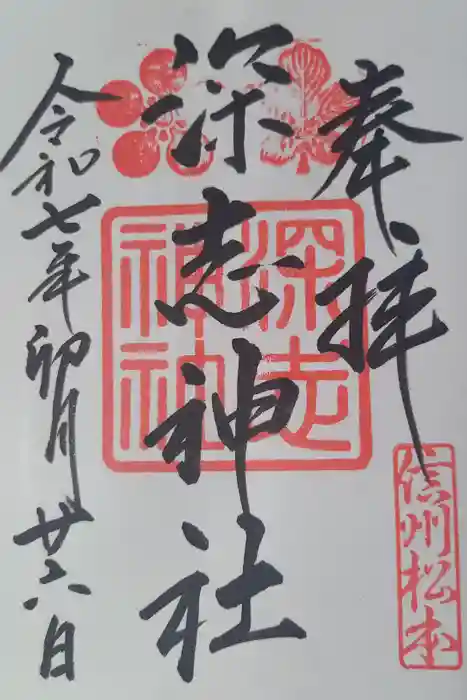 奉拝
信州松本
深志神社
深志神社
令和七年卯月廿六日